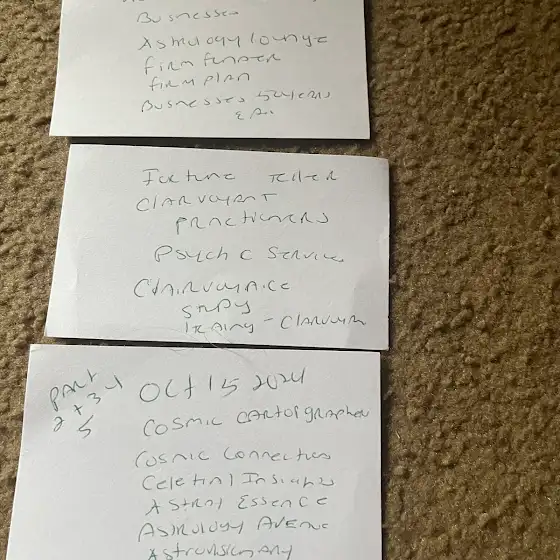 Businesses
Astrology lounge
firm funder
firm plan
Businesses
Fortune Teller
Clarvoyant
Practioners
Psychic Service
Clairvoyaice
Study
Oct 15 2024
Part
2 + 3 4
5
Cosmic Cartographer
Cosmic Connection
Celetial Insights
Astral Essence
Astrology Avenue
Astrovisionary